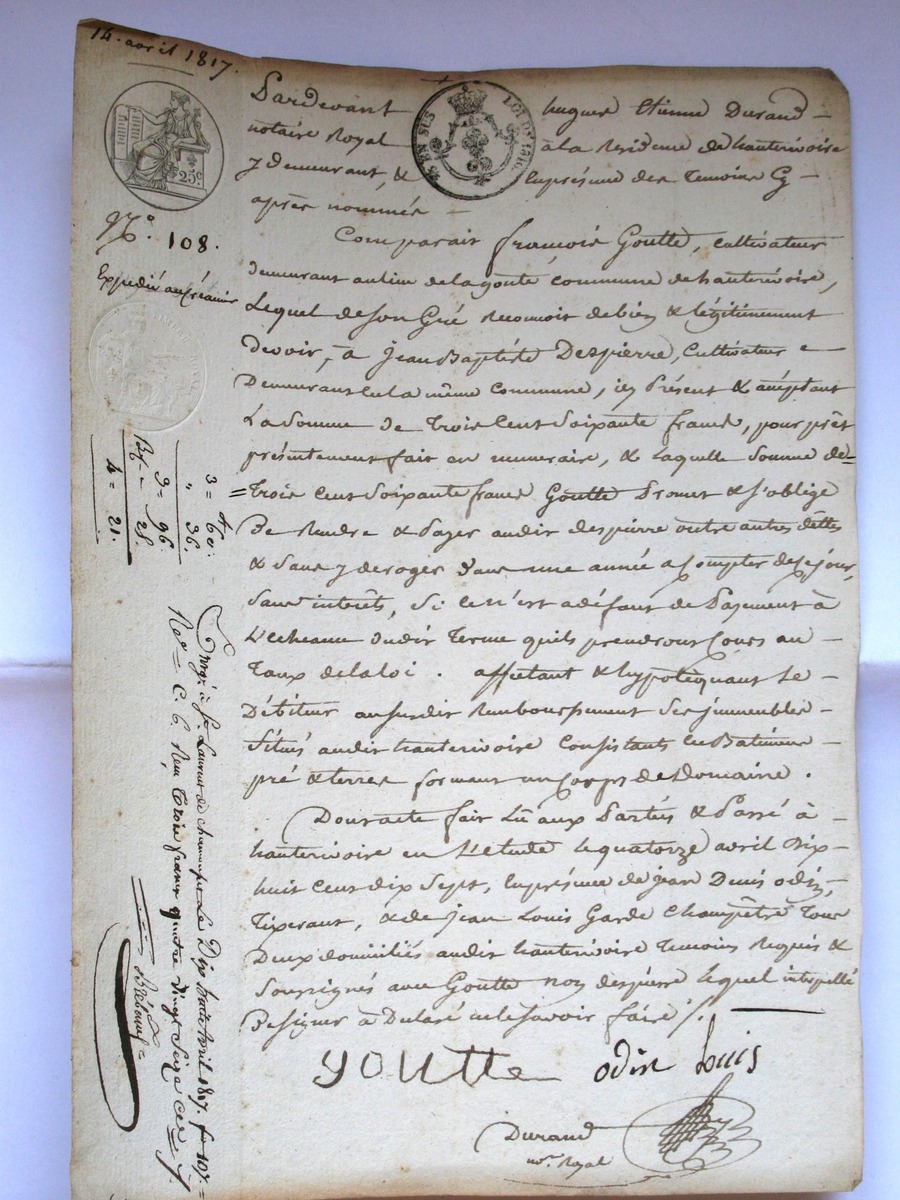 14. avril 1817.
25c
EN SUS
LOI DE 1816.
No. 108.
Expédié au Créancier
Pardevant hugues Etienne Durand
notaire Royal à la Residence de hauterivoire
y demeurant, & En présence des Temoins Cy
après nommés
Comparait françois Goutte, cultivateur
demeurant au lieu de la goute commune de hauterivoire,
Lequel de son Gré Reconnoit debien & légitimement
devoir, à Jean Baptiste Despierre, Cultivateur
Demeurant en la même commune, icy Présent & acceptant
La Somme de Trois Cent Soixante francs, pour prêt
présentement fait en numeraire, & Laquelle Somme de
Trois Cent Soixante francs Goutte Promet & s'oblige
De Rendre & Payer audit despierre outre autres dettes
& Sans y deroger dans une année a Compter de ce jour,
Sans intérêts, Si ce n'est a défaut de Payement à
L'echeance dudit Terme quils prendront Cours au
Taux de la loi. affectant & hypotequant Le
Débiteur au susdit Remboursement Ses immeubles
Situés audit hauterivoire Consistants en Batiments
pré & terres formant un Corps de Domaine.
Dont acte fait Lu aux Parties & Passé à
hauterivoire en L'etude le quatorze avril Dix
huit Cent dix Sept, En présence de jean Denis odin,
Tixerant, & de jean Louis Garde Champêtre Tous
Deux domiciliés audit hauterivoire Temoins Requis &
Soussignés avec Goutte non despierre lequel interpellé
De signer à Déclaré ne le Savoir faire /.
goutte odin Louis
Durand
no.re Royal
3 = 60.
" 36.
3 = 96.
25.
4 = 21.
Enrgé à St. Laurent de chamousset Le Dix huit Avril 1817. fo 107.
Reçu Trois francs quatre vingt Seize Ces